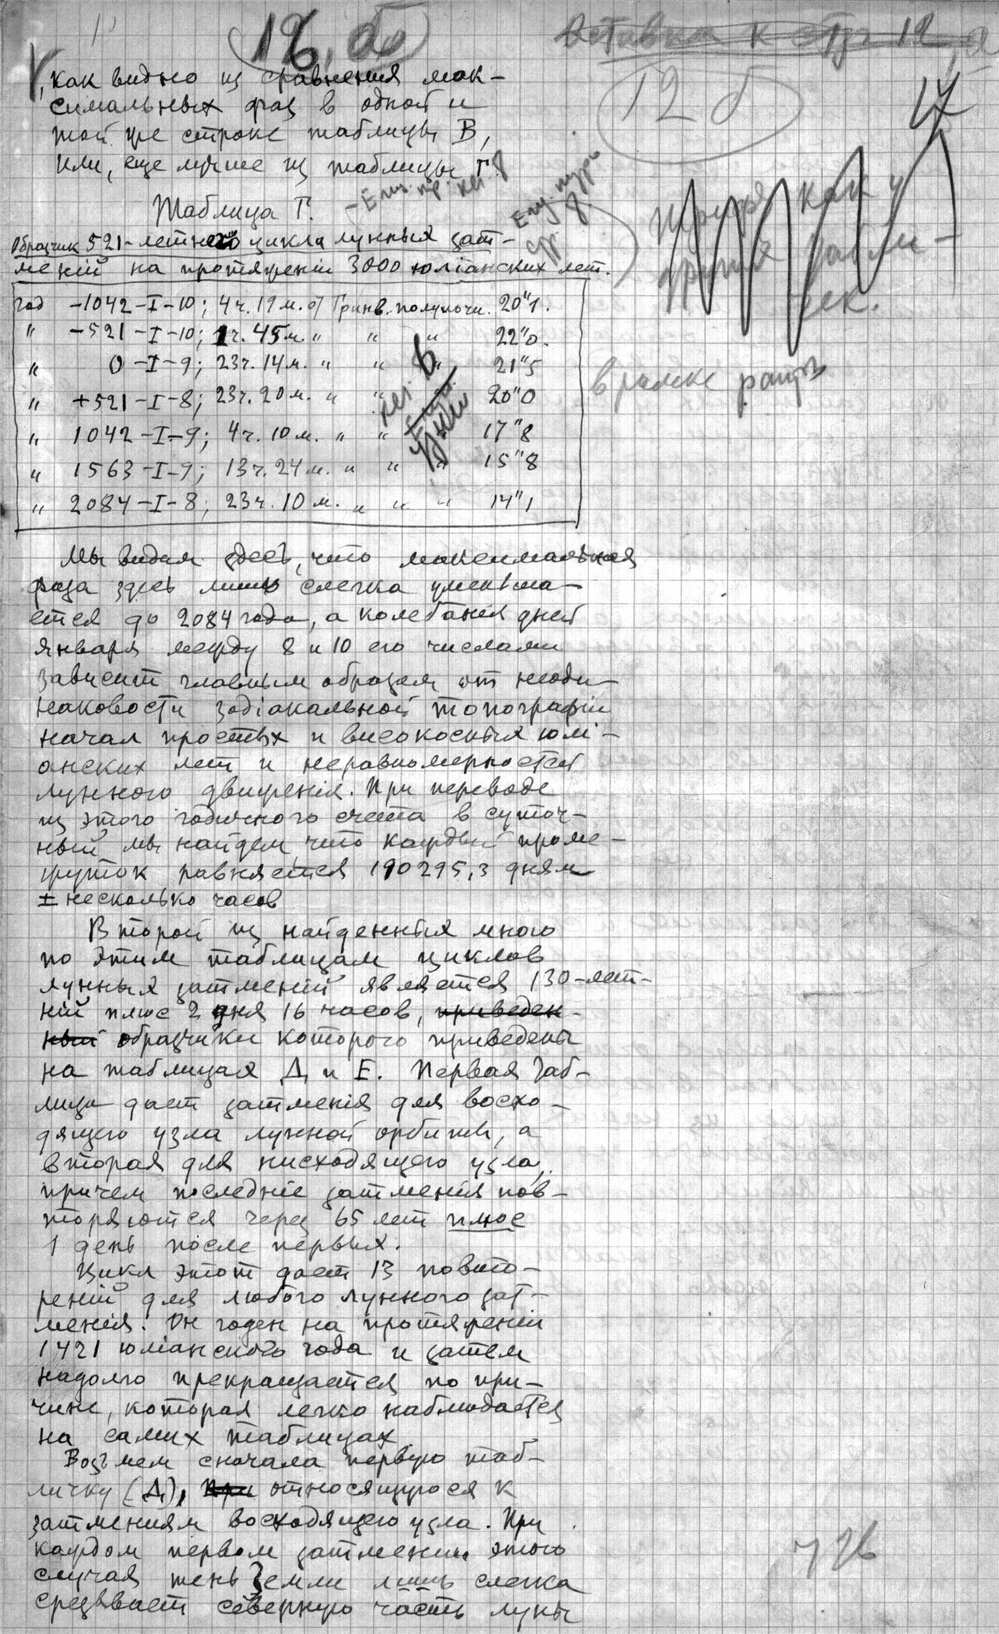 12, б
Вставка к стр 12, а
12 б
как видно из сравнения мак-
симальных фаз в одной и
той же строке таблицы В,
или, еще лучше из таблицы Г.
Таблица Г.
Образчик 521-летнего цикла лунных зат-
мений на протяженіи 3000 юліанских лет.
год -1042-I-10; 4ч. 19м. от Гринв. полуночи. 20"1.
" -521-I-10; 1ч. 45м. " " " 22"0.
" 0-I-9; 23ч. 14м. " " " 21"5
" +521-I-8; 23ч. 20м. " " " 20"0
" 1042-I-9; 4ч. 10м. " " " 17"8
" 1563-I-9; 13ч. 24м. " " " 15"8
" 2084-I-8; 23ч. 10м. " " " 14"1
как у
других табли-
чек.
в рамке
Мы видим здесь, что максимальная
фаза здесь лишь слегка уменьша-
ется до 2084 года, а колебания дней
января между 8 и 10 его числами
зависит главным образом от неоди-
наковости зодіакальной топографіи
начал простых и високосных юлі-
анских лет и неравномерностей
лунного движенія. При переводе
из этого годичного счета в суточ-
ный мы найдем что каждый проме-
жуток равняется 190295,3 дням
± несколько часов
Второй из найденных мною
по этим таблицам циклов
лунных затмений является 130-лет-
ній плюс 2 дня 16 часов, приведен-
ный образчики которого приведены
на таблицах Д и Е. Первая таб-
лица дает затменія для восхо-
дящего узла лунной орбиты, а
вторая для нисходящего узла,
причем последніе затменія пов-
торяются через 65 лет плюс
1 день после первых.
Цикл этот дает 13 повто-
реній для любого лунного зат-
менія. Он годен на протяженіи
1421 юліанского года и затем
надолго прекращается по при-
чине, которая легко наблюдается
на самих таблицах
Возьмем сначала первую таб-
личку (Д), при относящуюся к
затмениям восходящего узла. При
каждом первом затмении этого
случая тень Земли лишь слегка
срезывает северную часть луны